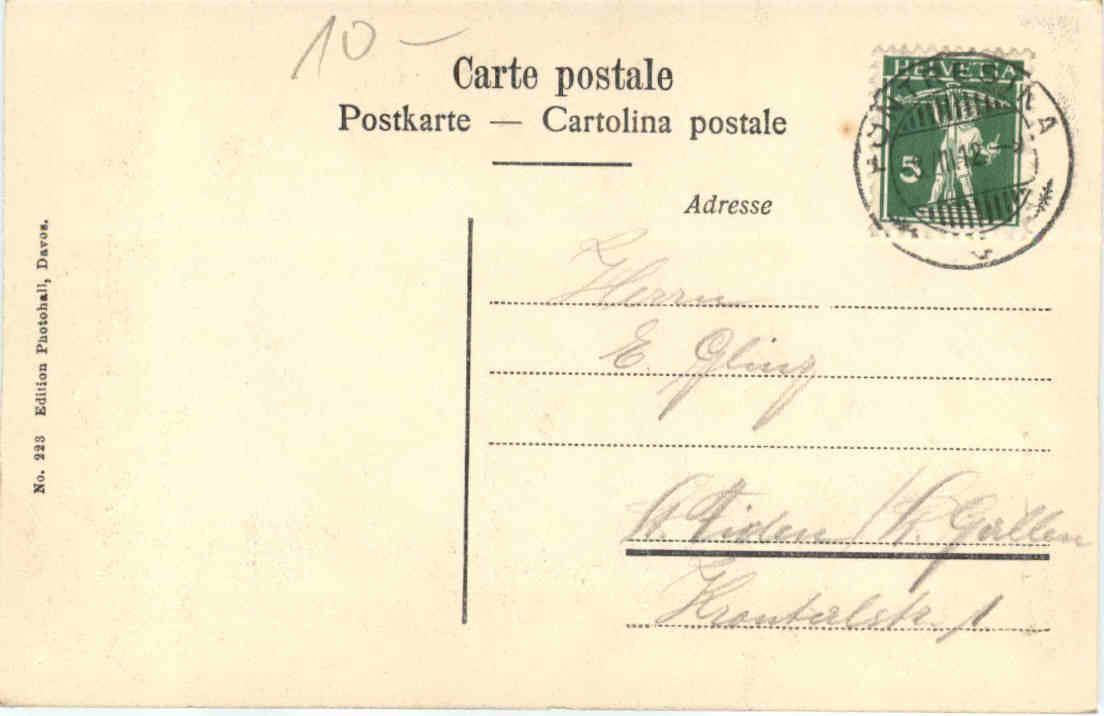 10 —
Carte postale
Postkarte — Cartolina postale
Adresse
HELVETIA
5
PONTRESINA
III 12
No. 223 Edition Photohall, Davos.
Herrn
E. Gling
St. Fiden / St. Gallen
Krontalstr. 1